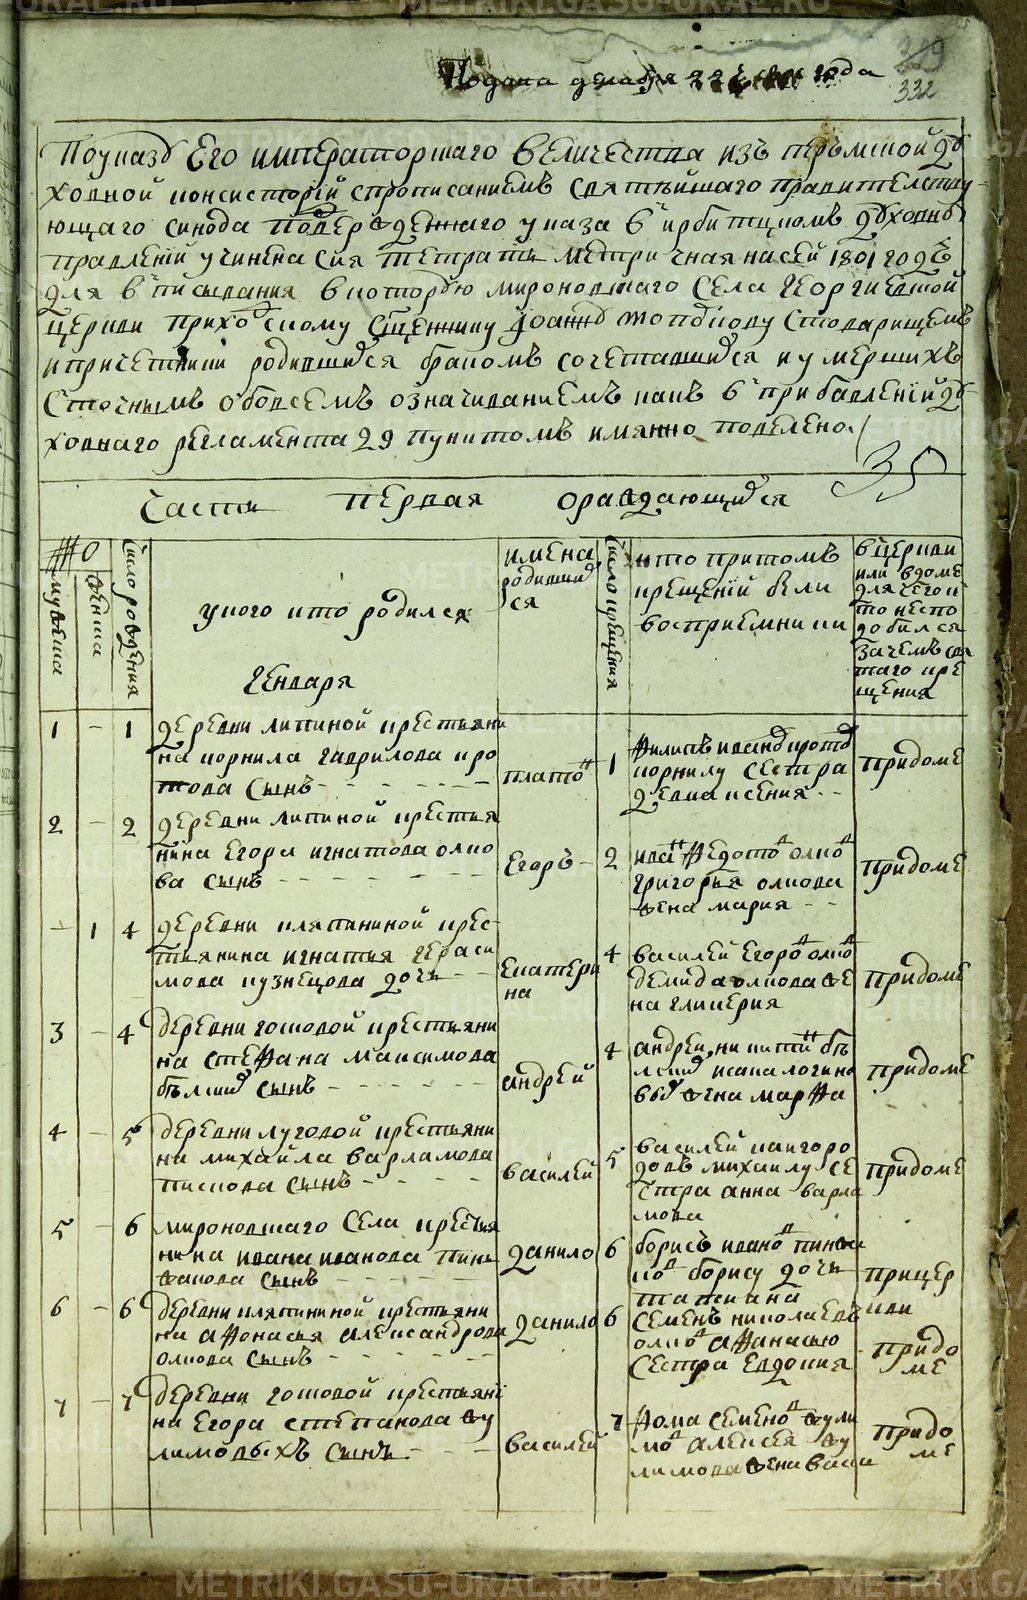 METRIKI.GASO-URAL.RU
329
332
Подана декабря 22 года
Поуказу Его императорскаго величества изъ перьмской ду
ховной консисторій спрописаниемъ святейшаго правителству
ющаго синода подтвержденнаго указа в ирбитцкомъ духовно
правленій учинена сия тетрать метричная насей 1801 годъ
для вписывания вкоторою мироновскаго села георгиевской
церкви приходскому священнику Иоанну топоркову стоварищемъ
ипричетники родившихся бракомъ сочетавшихся иумершихъ
сточнымъ обовсемъ означиваниемъ какъ в прибавленій ду
ховнаго регламента 29 пунктомъ имянно повелено.
35
Часть первая ораждающихся
число рождения
мужеска
женска
укого кто родился
имена
родивших
ся
число крещения
кто притомъ
крещеній были
восприемники
вцеркви
или вдоме
для чего и
кто неспо
добился
зачемъ свя
таго кре
щения
генваря
1 - 1 деревни липиной крестьяни
на корнила гаврилова кро
това сынъ
платон
1
филипъ иванов кротов
корнилу сестра
девка ксения
придоме
2 - 2 деревни липиной крестья
нина егора игнатова олко
ва сынъ
Егоръ
2
иван федотов олков
григорья олкова
жена мария
придоме
- 1 4 деревни кляпининой крес
тьянина игнатья гераси
мова кузнецова дочь
Екатери
на
4
василей егоров олков
демида олкова же
на гликерия
придоме
3 - 4 деревни гошовой крестьяни
на стефана максимова
сынъ
андрей
4
андрей никитин
исака логино
вых жена марфа
придоме
4 - 5 деревни луговой крестьяни
на михайла варламова
пискова сынъ
василей
5
василей каигоро
довъ михаилу се
стра анна варла
мова
придоме
5 - 6 мироновскаго села крестья
нина ивана иванова пинь
жакова сынъ
данило
6
борисъ иванов пинжа
ков борису дочь
татиана
прицер
кви
6 - 6 деревни кляпининой крестьяни
на афонасья александрова
олкова сынъ
данило
6
семенъ николаевъ
олков афанасью
сестра евдокия
придо
ме
7 - 7 деревни гошовой крестьяни
на егора степанова жу
лимовыхъ сынъ
василей
7
фома семенов жули
мов алексея жу
лимова жена васи
придо
ме
METRIKI.GASO-URAL.RU